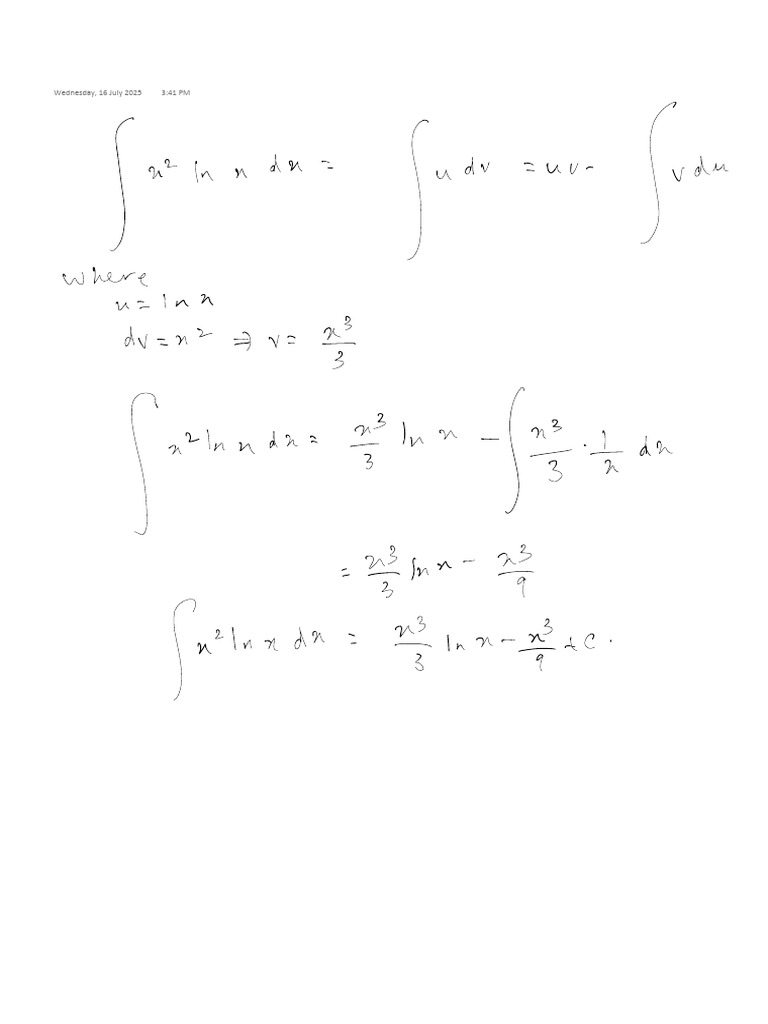 Wednesday, 16 July 2025 3:41 PM
∫ x² ln x dx = ∫ u dv = uv - ∫ v du
where
u = ln x
dv = x² ⇒ v = x³/3
∫ x² ln x dx = x³/3 ln x - ∫ x³/3 · 1/x dx
= x³/3 ln x - x³/9
∫ x² ln x dx = x³/3 ln x - x³/9 + C.